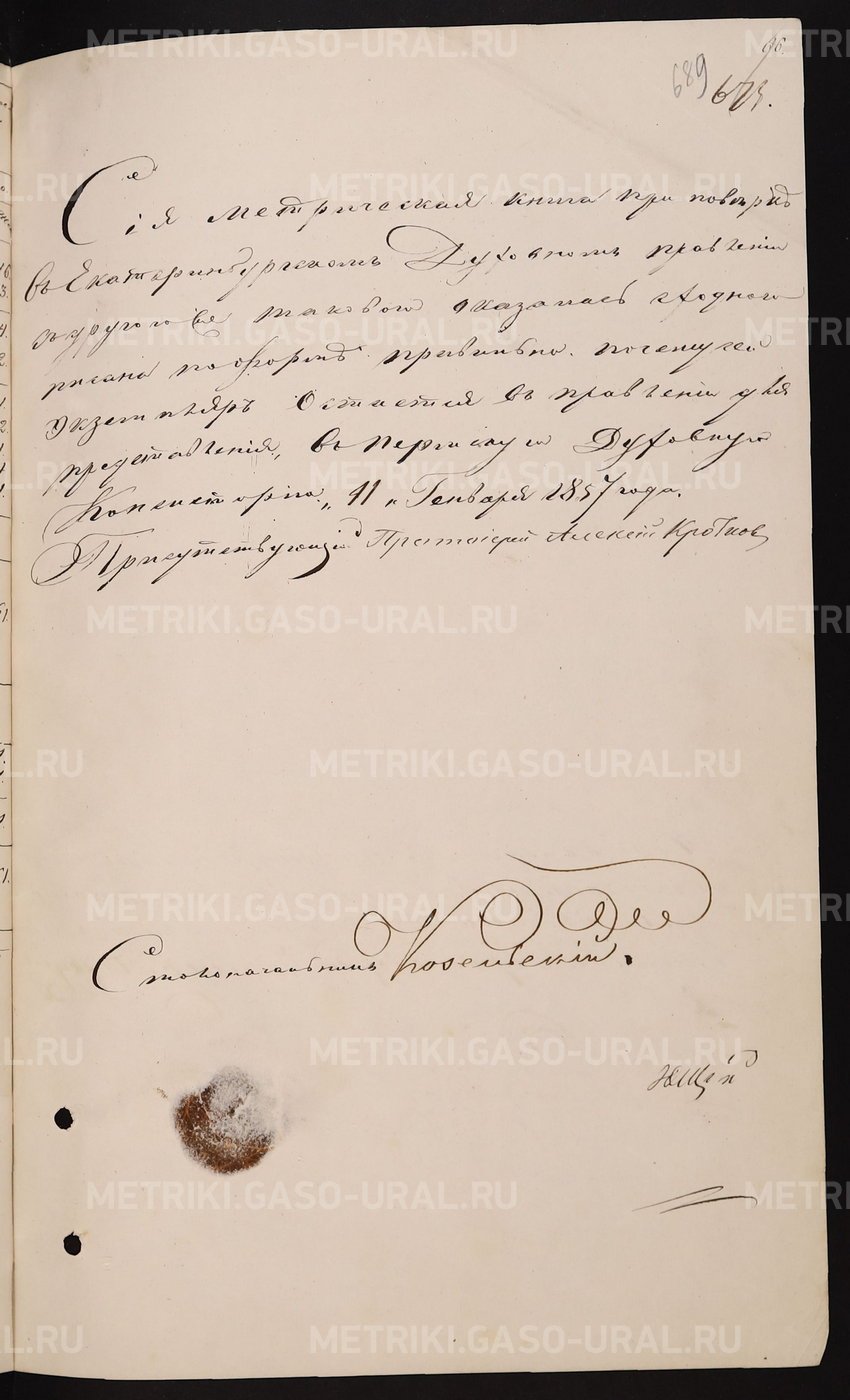 96.
689
675.
Сія Метрическая книга при повѣркѣ
въ Екатеринбургскомъ Духовномъ правленіи
съ другою ея таковою оказалась сходною
писана по формѣ правильно. почему сей
экземпляръ остается въ правленіи для
представленія, въ Пермскую Духовную
Консисторію. „11„ Генваря 1857 года.
Присутствующій Протоіерей Алексѣй Кротков
Столоначальникъ Козельскій.
METRIKI.GASO-URAL.RU